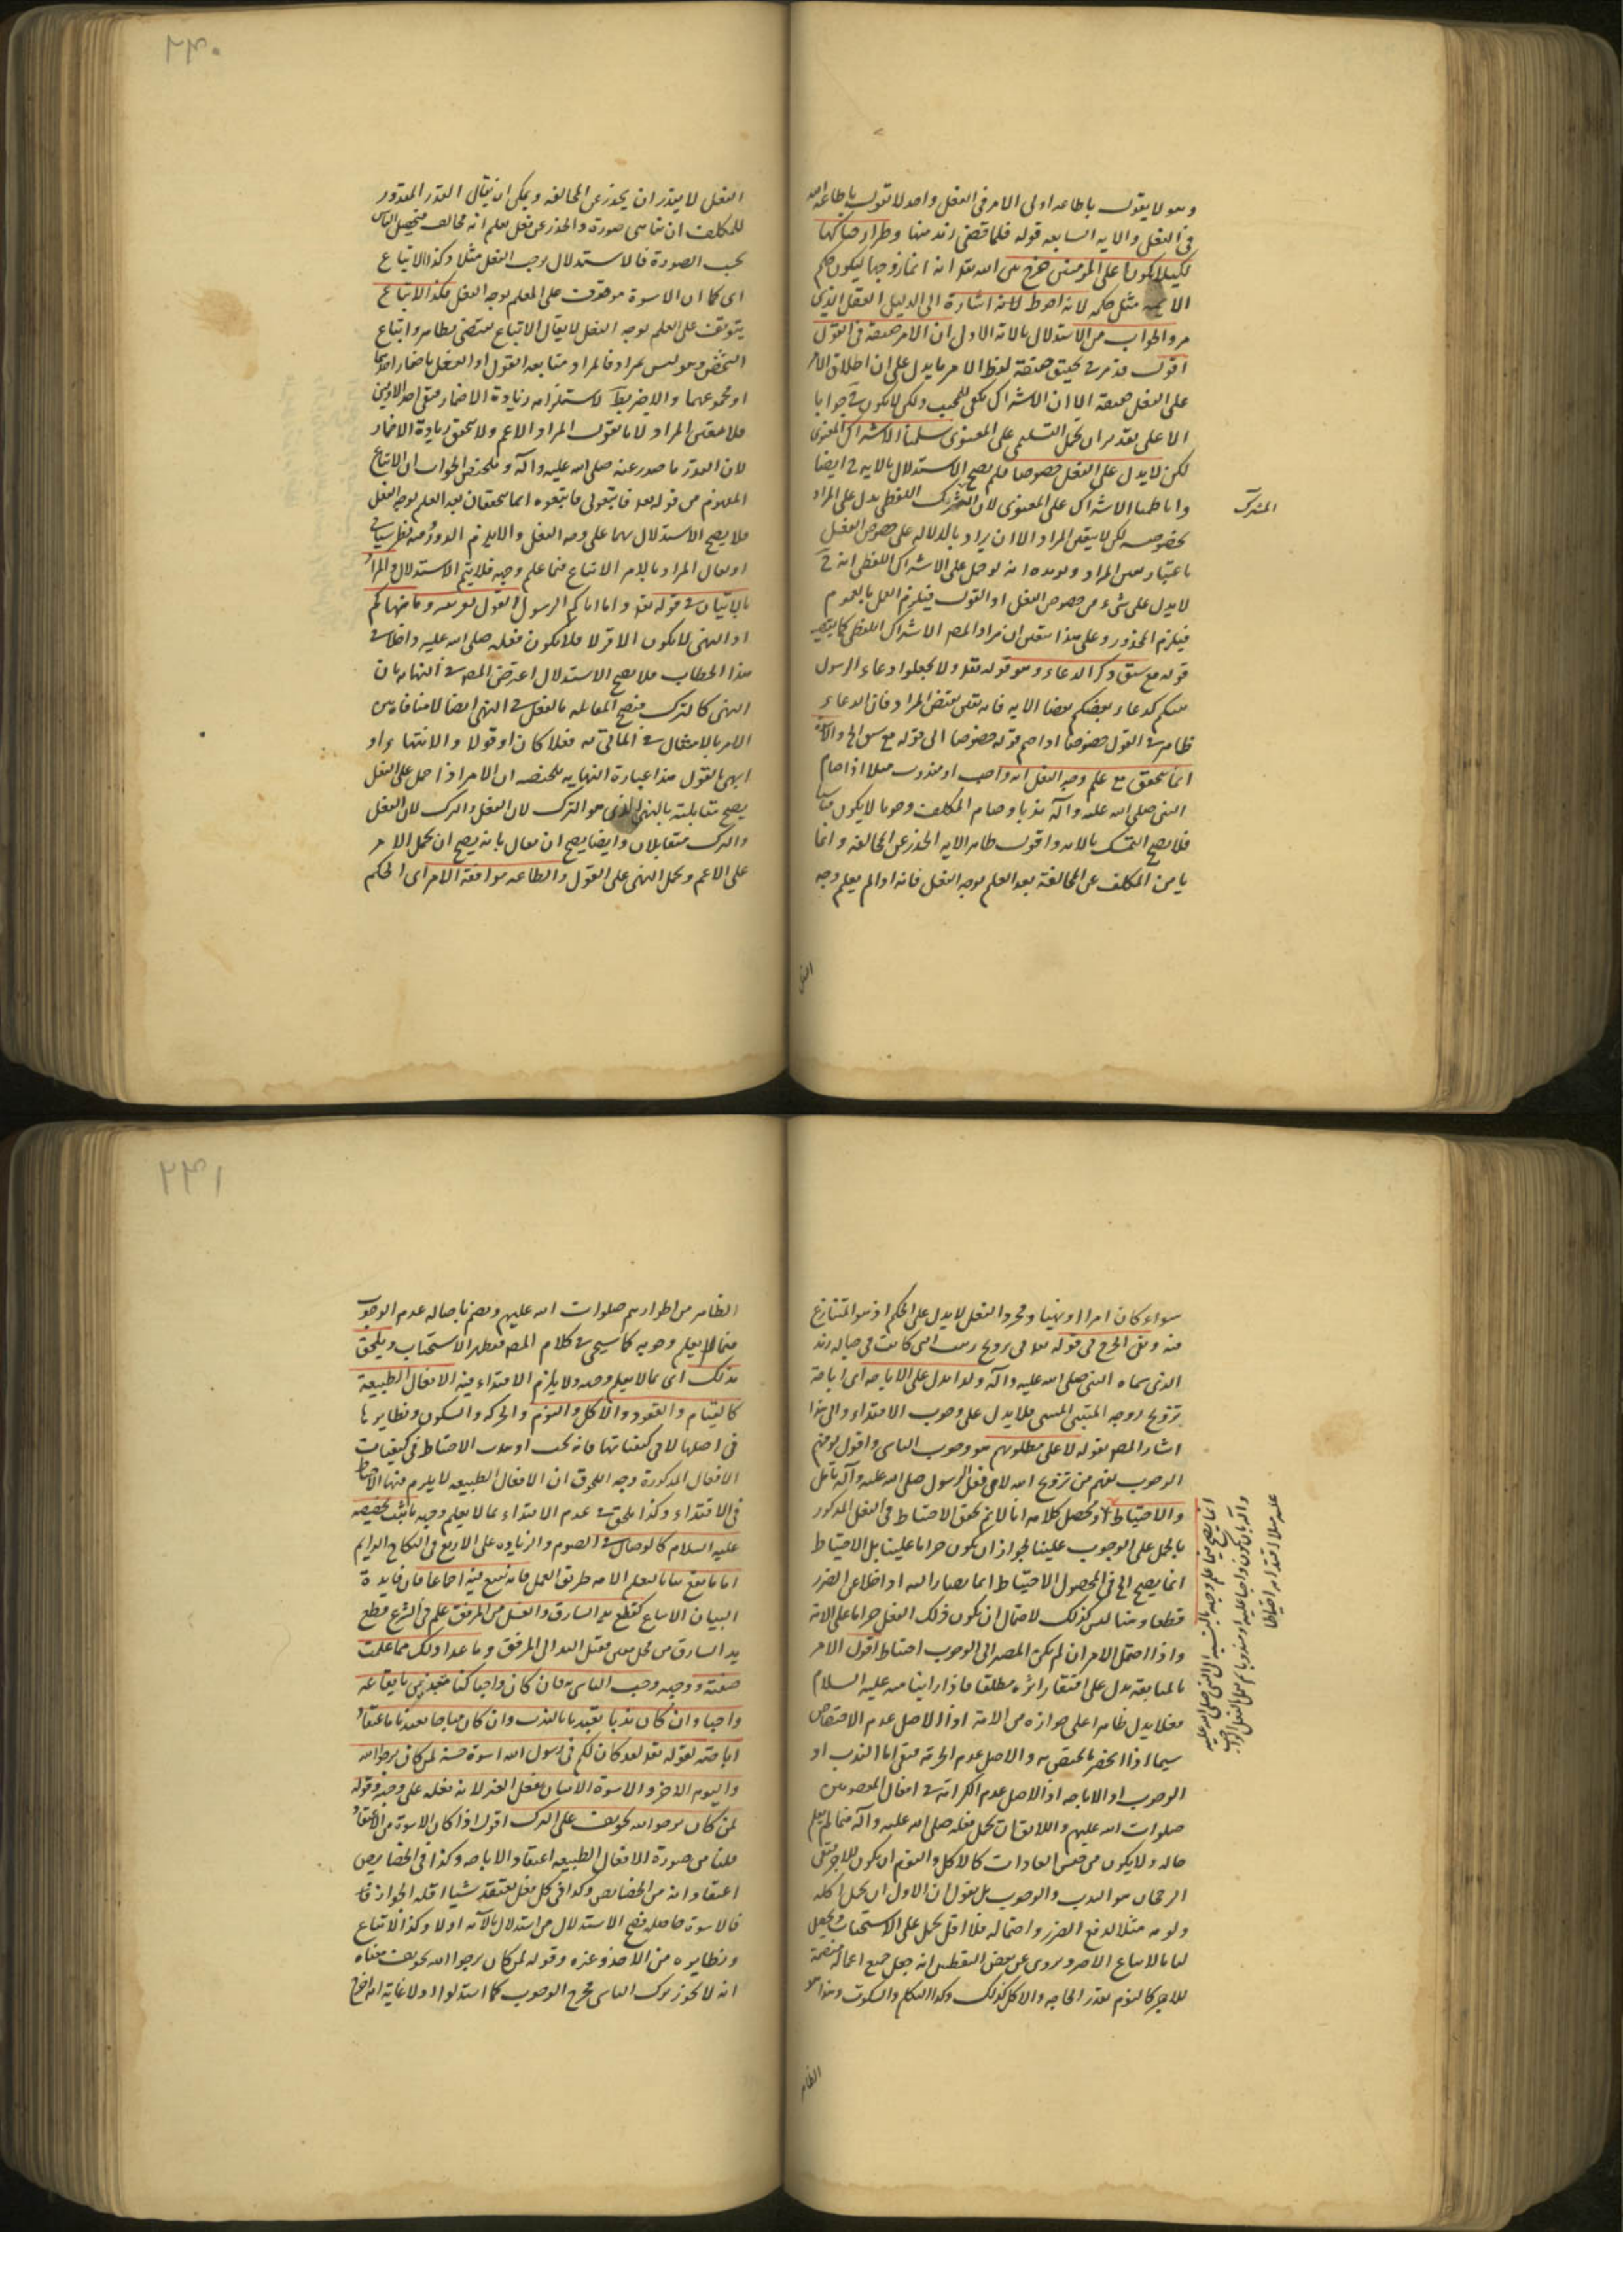 وهو لا يقول باطاعه اولى الامر فى الفعل واحد لا نقول باطاعه الله
فى الفعل والايه السابعه قوله فلما قضى زيد منها وطرا زوجناكها
لكيلا يكون على المؤمنين حرج بين الله تعه انه انما زوجها ليكون حكم
الامه مثل حكمه لانه احوط لانه اشارة الى الدليل العقلى الذى
مر والجواب من الاستدلال بالاية الاول ان الامر حقيقة فى القول
اقول قد مر فى تحقيق حقيقة لفظ الامر ما يدل على ان اطلاق الامر
على الفعل حقيقة الا ان الاشتراك يكفى للمجيب ولكن لا يكون جوابا
الا على تقدير ان يحمل التسليم على المعنوى سلمنا الاشتراك المعنوى
لكن لا يدل على الفعل خصوصا فلم يصح الاستدلال بالايه ايضا
وانا حملنا الاشتراك على المعنوى لان المشترك اللفظى يدل على المراد
المشترك
بخصوصه لكن لا يتعين المراد الا ان يراد بالدلاله على خصوص الفعل
باعتبار تعين المراد ويؤيده انه لو حمل على الاشتراك اللفظى انه
لا يدل على شىء من خصوص الفعل او القول فيلزم العمل بالعموم
فيلزم المحذور وعلى هذا يتعين ان مراد المصر الاشتراك اللفظى
قوله مع سبق ذكر الدعاء وهو قوله تعه ولا تجعلوا دعاء الرسول
بينكم كدعاء بعضكم بعضا الايه فانه يقتضى المراد فان الدعاء
ظاهر فى القول خصوصا اذا ضم قوله خصوصا الى قوله مع سبق الخ
انما يتحقق مع علم وجه الفعل انه واجب او مندوب مثلا اذا صام
النبى صلى الله عليه وآله ندبا وصام المكلف وجوبا لا يكون
فلا يصح التمسك بالايه واقول ظاهر الايه الحذر عن المخالفة وانما
يا من المكلف عن المخالفة بعد العلم بوجه الفعل فانه اذا لم يعلم وجه
الفعل

٢٣٠
الفعل لا يقدر ان يحذر عن المخالفه ويمكن ان يقال القدر المقدور
للمكلف ان يتاسى صورة والحذر عن فعل يعلم انه مخالف
بحسب الصورة فالاستدلال بوجب الفعل مثلا وكذا الاتباع
اى كما ان الاسوة موقوف على العلم بوجه الفعل فكذا الاتباع
يتوقف على العلم بوجه الفعل لا يقال الاتباع يقتضى بظاهره اتباع
الشخص وهو ليس بمراد فالمراد متابعه القول او الفعل باضمار احدهما
او مجموعهما والاخير بط لاستلزامه زيادة الاضمار فبقى احد الاولين
فلا يتعين المراد لانا نقول المراد الاعم ولا يتحقق زيادة الاضمار
لان القدر ما صدر عنه صلى الله عليه وآله وملخص الجواب ان الاتباع
المفهوم من قوله تعه فاتبعونى فاتبعوه انما يتحققان بعد العلم بوجه الفعل
فلا يصح الاستدلال بهما على وجه الفعل والا يلزم الدور وفيه نظر سياتى
او يقال المراد بالامر الاتباع فيما علم وجهه فلا يتم الاستدلال والمراد
بالاتيان فى قوله تعه وما اتاكم الرسول القول لقرينه وما نهاكم
اذ النهى لا يكون الا قولا فلا يكون فعله صلى الله عليه داخلا فى
هذا الخطاب فلا يصح الاستدلال اعترض المصر فى النهايه بان
النهى كالترك فيصح المقابله بالفعل فى النهى ايضا لا منافاه بين
الامر بالامتثال فى المأتى به فعلا كان او قولا والانتهاء او
النهى بالقول هذا عبارة النهايه ملخصه ان الامر اذا حمل على الفعل
يصح مقابلته بالنهى الذى هو الترك لان الفعل والترك لان الفعل
والترك متقابلان وايضا يصح ان يقال بانه يصح ان يحمل الامر
على الاعم ويحمل النهى على القول والطاعه موافقة الامر اى الحكم

سواء كان امرا او نهيا ومجرد الفعل لا يدل على الحكم اذ هو المتنازع
فيه ونفى الحرج فى قوله تعه فى تزويج زينب التى كانت فى حباله زيد
الذى سماه النبى صلى الله عليه وآله ولدا يدل على الاباحه اى اباحة
تزويج زوجه المتبنى المسمى فلا يدل على وجوب الاقتداء والى هذا
اشار المصر بقوله لا على مطلوبهم هو وجوب التاسى واقول
الوجوب يفهم من تزويج الله لا من فعل الرسول صلى الله عليه وآله تامل
والاحتياط آه محصل كلامه انا لا نم تحقق الاحتياط فى الفعل المذكور
بالحمل على الوجوب علينا لجواز ان يكون حراما علينا بل الاحتياط
انما يصح الخ فى المحصول الاحتياط انما يصار اليه اذا خلا عن الضرر
قطعا وهنا ليس كذلك لاحتمال ان يكون ذلك الفعل حراما على الامة
واذا احتمل الامران لم يكن المصير الى الوجوب احتياطا اقول الامر
بالمتابعة يدل على اقتفار اثره مطلقا فاذا راينا منه عليه السلام
فعلا يدل ظاهرا على جوازه من الامة اذ الاصل عدم الاختصاص
سيما اذا انحصر ما يختص به والاصل عدم الحرمة فبقى اما الندب او
الوجوب او الاباحه اذ الاصل عدم الكراهة فى افعال المعصومين
صلوات الله عليهم واللائق ان يحمل فعله صلى الله عليه وآله فيما لم يعلم
حاله ولا يكون من جنس العادات كالاكل والنوم ان يكون للاجر فبقى
الرجحان هو الندب والوجوب بل نقول ان الاولى ان يحمل اكله
ونومه مثلا لدفع الضرر واحتماله فلا اقل يحمل على الاستحباب ويحصل
لنا بالاتباع الاجر ويروى عن بعض انه جعل جميع اعماله
للاجر كالنوم بقدر الحاجه والاكل كذلك وكذا التكلم والسكوت وهذا هو
الظاهر
انما يصح فيما علم وجهه بالنسبه الى النبى صلى الله عليه
وآله بان يكون واجبا عليه او مندوبا
عليه مثلا اقتداء به احتياطا

٢٣١
الظاهر من اطوارهم صلوات الله عليهم ويضم باصاله عدم الوجوب
فيما لا يعلم وجوبه كما سيجى فى كلام المصر فيظهر الاستحباب ويلحق
بذلك اى بما لا يعلم وجهه ولا يلزم الاقتداء فيه الافعال الطبيعة
كالقيام والقعود والاكل والنوم والحركه والسكون ونظايرها
فى اصلها لا فى كيفياتها فانه يجب او يندب الاحتياط فى كيفيات
الافعال المذكورة وجه اللحوق ان الافعال الطبيعه لا يلزم فيها الاحتياط
فى الاقتداء وكذا يلحق فى عدم الاقتداء بما لا يعلم وجهه ما ثبت تخصيصه
عليه السلام كالوصال فى الصوم والزياده على الاربع فى النكاح الدايم
اما ما يقع بيانا لفعل الامه طريق العمل فانه يتبع فيه اجماعا فان فايدة
البيان الاتباع كقطع يد السارق والغسل من المرفق علم فى الشرع قطع
يد السارق من محل معين فغسل اليد الى المرفق وما عدا ذلك مما علمت
صفته ووجهه وجب التاسى به فان كان واجبا كنا متعبدين بايقاعه
واجبا وان كان ندبا تعبدنا بالندب وان كان مباحا تعبدنا باعتقاد
اباحته لقوله تعه لقد كان لكم فى رسول الله اسوة حسنة لمن كان يرجوا الله
واليوم الاخر والاسوة الاتيان بفعل الغير لانه فعله على وجهه وقوله
لمن كان يرجو الله تخويف على الترك اقول اذا كان الاسوة من الاعتقاد
قلنا من صورة الافعال الطبيعه اعتقاد الاباحه وكذا فى الخصايص
اعتقاد انه من الخصايص وكذا فى كل فعل يعتقد شيئا اقله الجواز
فالاسوة حاصله فصح الاستدلال من استدل بالآيه اولا وكذا الاتباع
ونظايره من الاخذ وغيره وقوله لمن كان يرجوا الله تخويف معناه
انه لا يجوز ترك التاسى فخرج الوجوب كما استدلوا اولا غايته انه اخرج